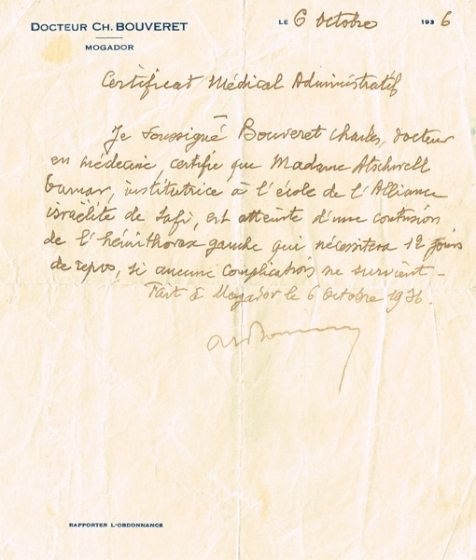 DOCTEUR CH. BOUVERET
MOGADOR
LE 6 Octobre 1936
Certificat Médical Administratif
Je soussigné Bouveret Charles, docteur
en médecine, certifie que Madame
institutrice à l'école de l'Alliance
israëlite de Safi, est atteinte d'une contusion
de l'hémithorax gauche qui nécessitera 12 jours
de repos, si aucune complication ne survient –
Fait à Mogador le 6 Octobre 1936.
RAPPORTER L'ORDONNANCE